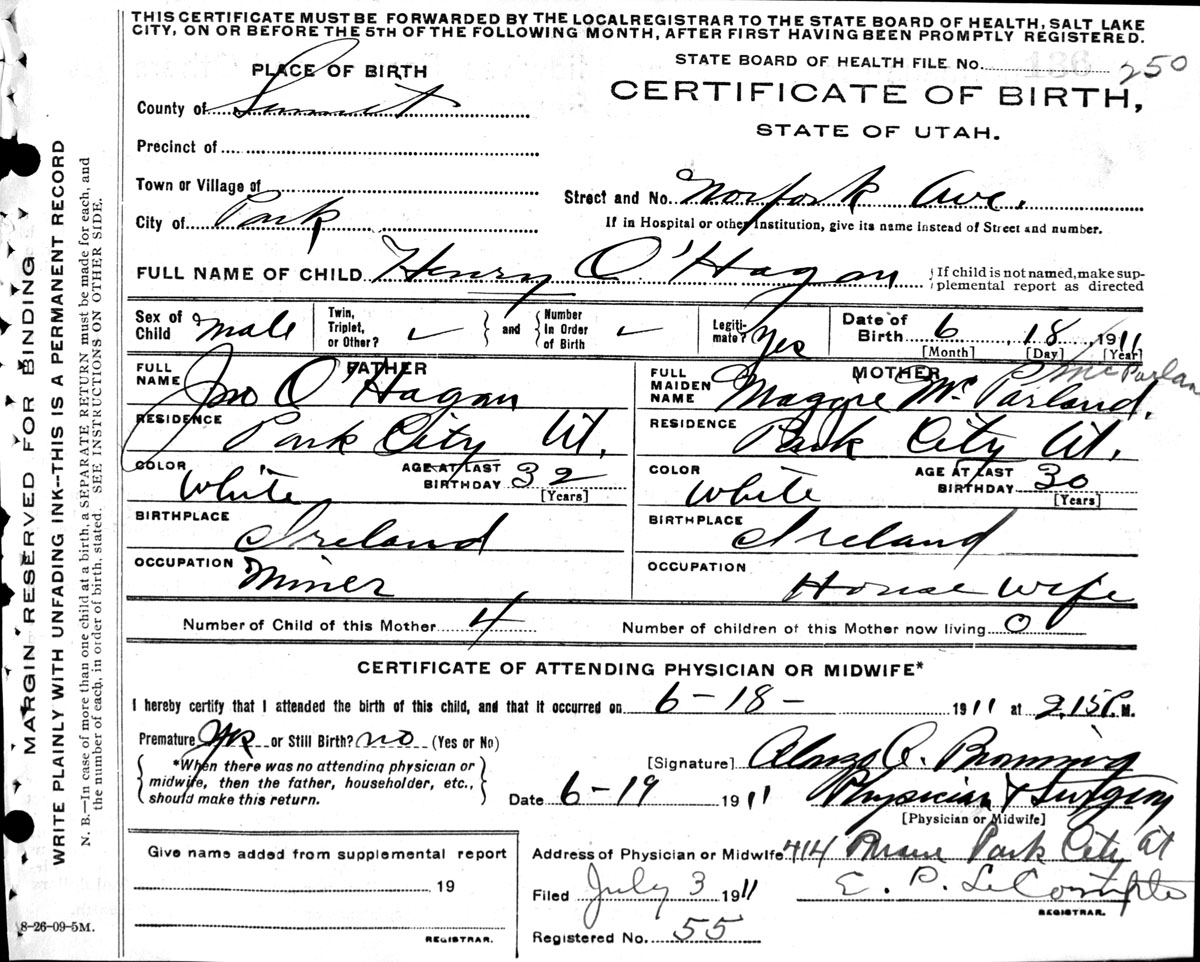 THIS CERTIFICATE MUST BE FORWARDED BY THE LOCAL REGISTRAR TO THE STATE BOARD OF HEALTH, SALT LAKE
CITY, ON OR BEFORE THE 5TH OF THE FOLLOWING MONTH, AFTER FIRST HAVING BEEN PROMPTLY REGISTERED.
STATE BOARD OF HEALTH FILE NO. 136 250
PLACE OF BIRTH
CERTIFICATE OF BIRTH,
STATE OF UTAH.
County of Summit
Precinct of
Town or Village of
Street and No. Norfork Ave.
City of Park
If in Hospital or other Institution, give its name instead of Street and number.
FULL NAME OF CHILD Henry O'Hagan
If child is not named, make sup-
plemental report as directed
Sex of Child male
Twin, Triplet, or Other? and Number In Order of Birth
Legiti-mate? Yes
Date of Birth 6, 18, 1911
[Month] [Day] [Year]
FATHER
FULL NAME Jno O'Hagan
RESIDENCE Park City Ut.
COLOR White AGE AT LAST BIRTHDAY 32
[Years]
BIRTHPLACE Ireland
OCCUPATION Miner
MOTHER
FULL MAIDEN NAME Maggie McParland.
McParlan
RESIDENCE Park City Ut.
COLOR White AGE AT LAST BIRTHDAY 30
[Years]
BIRTHPLACE Ireland
OCCUPATION House wife
Number of Child of this Mother 4 Number of children of this Mother now living 0
CERTIFICATE OF ATTENDING PHYSICIAN OR MIDWIFE*
I hereby certify that I attended the birth of this child, and that it occurred on 6-18- 1911 at 2.15 P.M.
Premature Yes or Still Birth? no (Yes or No)
*When there was no attending physician or
midwife, then the father, householder, etc.,
should make this return.
[Signature] Alonzo A. Browning
Date 6-19 1911 Physician & Surgery
[Physician or Midwife]
Give name added from supplemental report
19
REGISTRAR.
Address of Physician or Midwife 414 Park City Ut
Filed July 3 1911 E. P. LeCompte
REGISTRAR.
Registered No. 55
8-26-09-5M.
MARGIN RESERVED FOR BINDING
WRITE PLAINLY WITH UNFADING INK--THIS IS A PERMANENT RECORD
N. B.—In case of more than one child at a birth, a SEPARATE RETURN must be made for each, and
the number of each, in order of birth, stated. SEE INSTRUCTIONS ON OTHER SIDE.